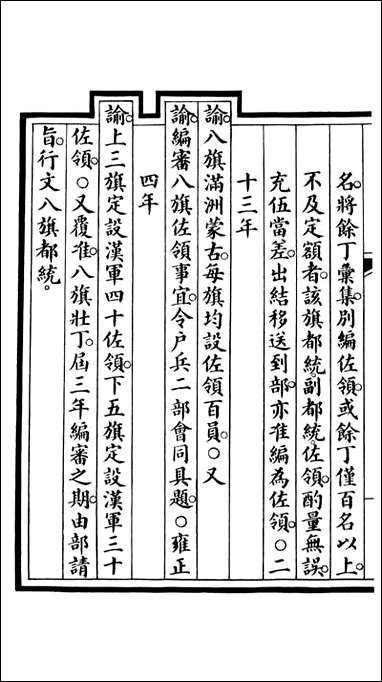 名。將餘丁彙集。別編佐領。或餘丁僅百名以上。
不及定額者。該旗都統。副都統。佐領。酌量無誤。
充伍當差。出結移送到部。亦准編為佐領。○二
十三年
諭。八旗滿洲蒙古。每旗均設佐領百員。○又
諭。編審八旗佐領事宜。令户兵二部會同具題。○雍正
四年
諭。上三旗定設漢軍四十佐領。下五旗定設漢軍三十
佐領。○又覆准。八旗壯丁。屆三年編審之期。由部請
旨。行文八旗都統。